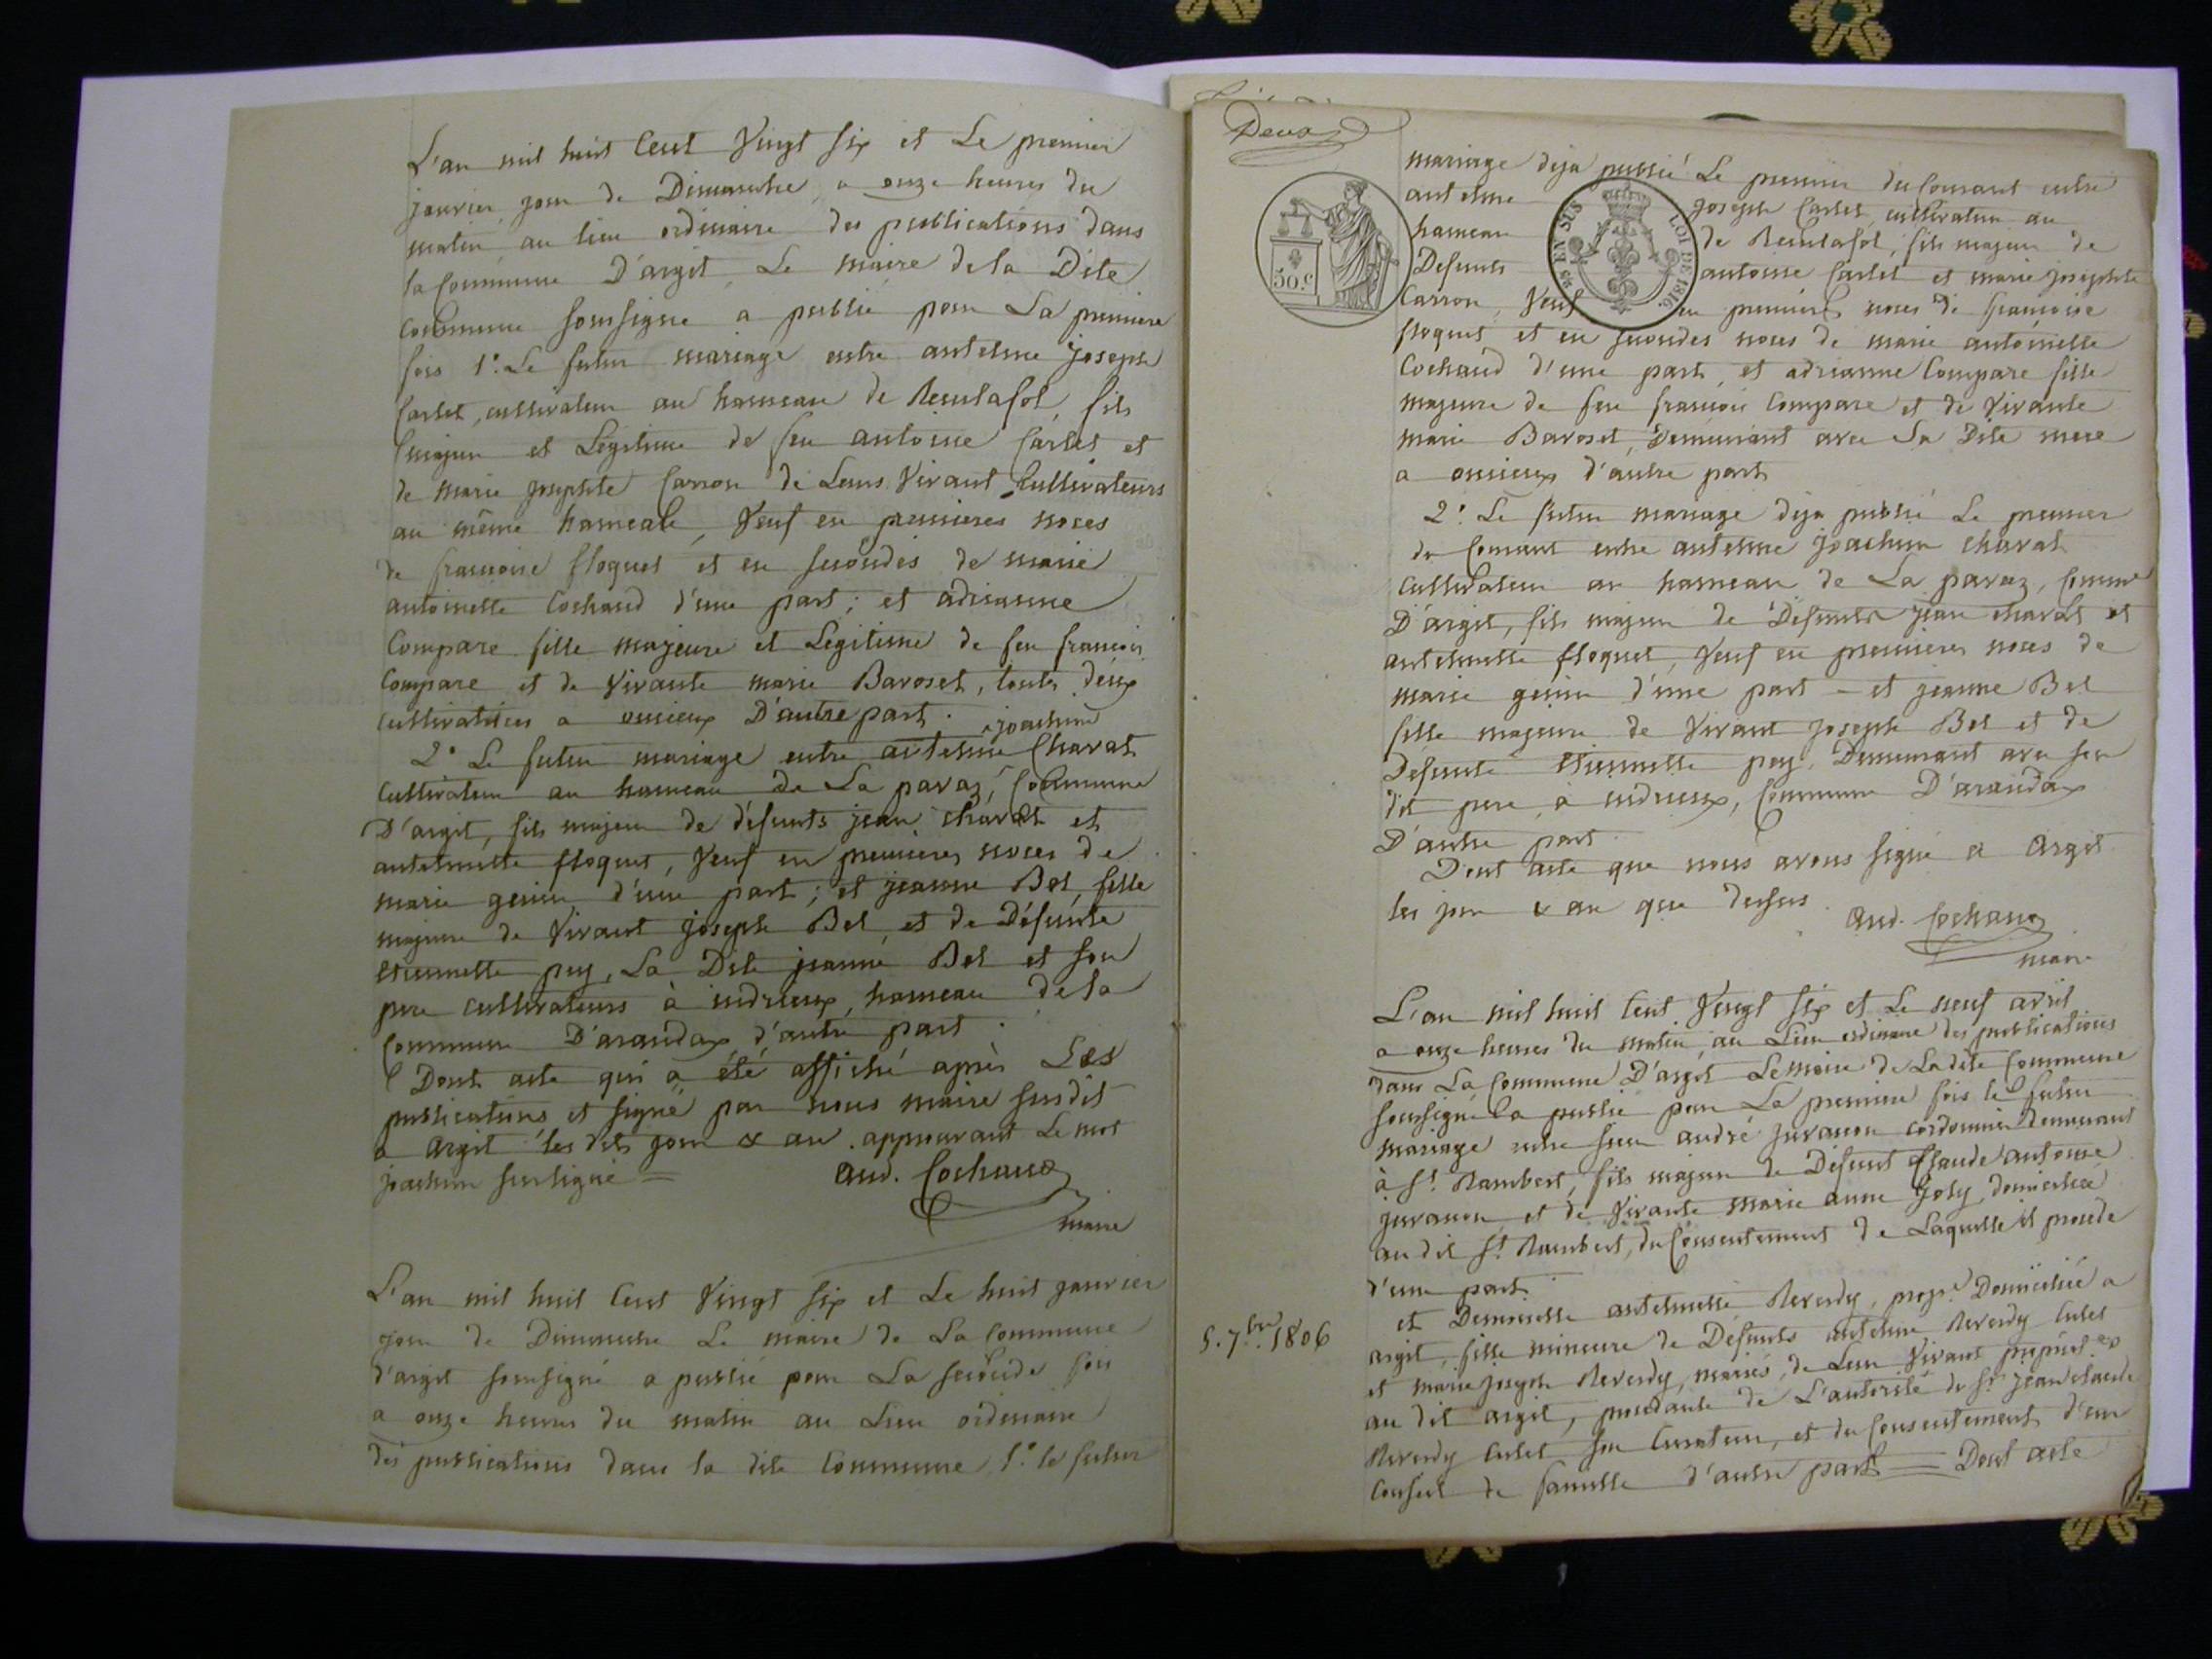 L'an mil huit Cent Vingt six et Le premier
janvier jour de Dimanche, a onze heures du
matin au lieu ordinaire des publications dans
la Commune D'argit, Le maire de la Dite
Commune soussigné a publié pour La premiere
fois 1°. Le futur mariage entre antelme joseph
Carlet, cultivateur au hameau de Reculafol, fils
majeur et Légitime de feu antoine Carlet et
de marie josephte Carron de Leurs Vivant Cultivateurs
au même hameau, Veuf en premieres noces
de francoise floquet et en secondes de marie
antoinette Cochaud d'une part; et adrianne
Compare fille majeure et Legitime de feu francois
Compare et de Vivante marie Baroset, toutes deux
cultivatrices a oncieux D'autre part.
joachim
2° Le futur mariage entre antelme Charat
Cultivateur au hameau de La pavaz, Commune
D'argit, fils majeur de défunts jean Charat et
antelmette floquet, Veuf en premieres noces de
marie genin d'une part; et jeanne Bel fille
majeure de Vivant joseph Bel, et de Défunte
etiennette pey, La Dite jeanne Bel et son
pere cultivateurs à indrieux, hameau de la
Commune D'arandas d'autre part.
Dont acte qui a été affiché après Les
publications et signé par nous maire susdit
a argit les dits jour & an. approuvant Le mot
joachim surligné =
And. Cochaud
maire
L'an mil huit Cent Vingt six et Le huit janvier
jour de Dimanche Le maire de La Commune
d'argit soussigné a publié pour La seconde fois
a onze heures du matin au Lieu ordinaire
des publications dans la dite Commune, 1°. le futur
Deux
mariage deja publié Le premier du Courant entre
antelme joseph Carlet, cultivateur au
hameau de Reculafol, fils majeur de
Defunts antoine Carlet et marie josephte
Carron, Veuf en premières noces de francoise
floquet et en secondes noces de marie antoinette
Cochaud d'une part, et adrianne Compare fille
majeure de feu francois Compare et de Vivante
marie Baroset, Demeurant avec Sa Dite mere
a oncieux d'autre part
50.c
EN SUS LOI DE 1816.
2°. Le futur mariage deja publié Le premier
du Courant entre antelme joachim charat
cultivateur au hameau de La pavaz, Comme
D'argit, fils majeur de Defunts jean charat et
antelmette floquet, Veuf en premieres noces de
marie genin d'une part – et jeanne Bel
fille majeure de Vivant joseph Bel et de
Défunte Etiennette pey, Demeurant avec son
dit pere, à indrieux, Commune D'arandas
D'autre part.
Dont acte que nous avons signé a Argit
les jour & an que dessus.
And. Cochaud
maire
L'an mil huit Cent Vingt six et Le neuf avril
a onze heures du matin, au Lieu ordinaire des publications
dans La Commune D'argit Le maire de La dite Commune
soussigné a publié pour La premiere fois le futur
mariage entre sieur andré juvanon cordonnier Demeurant
à St. Rambert, fils majeur de Défunt Claude antoine
juvanon et de Vivante marie anne joly, domiciliée
au dit St. Rambert, du Consentement de Laquelle il procede
d'une part.
et Demoiselle antelmette Reverdy, propre. Domiciliée a
5. 7bre. 1806
argit, fille mineure de Défunts antelme Reverdy Culet
et marie joseph Reverdy, mariés, de Leur Vivant propriet.es
au dit argit, procedante de L'autorité de Sr. jean claude
Reverdy Culet son Curateur, et du Consentement d'un
Conseil de famille d'autre part = Dont acte